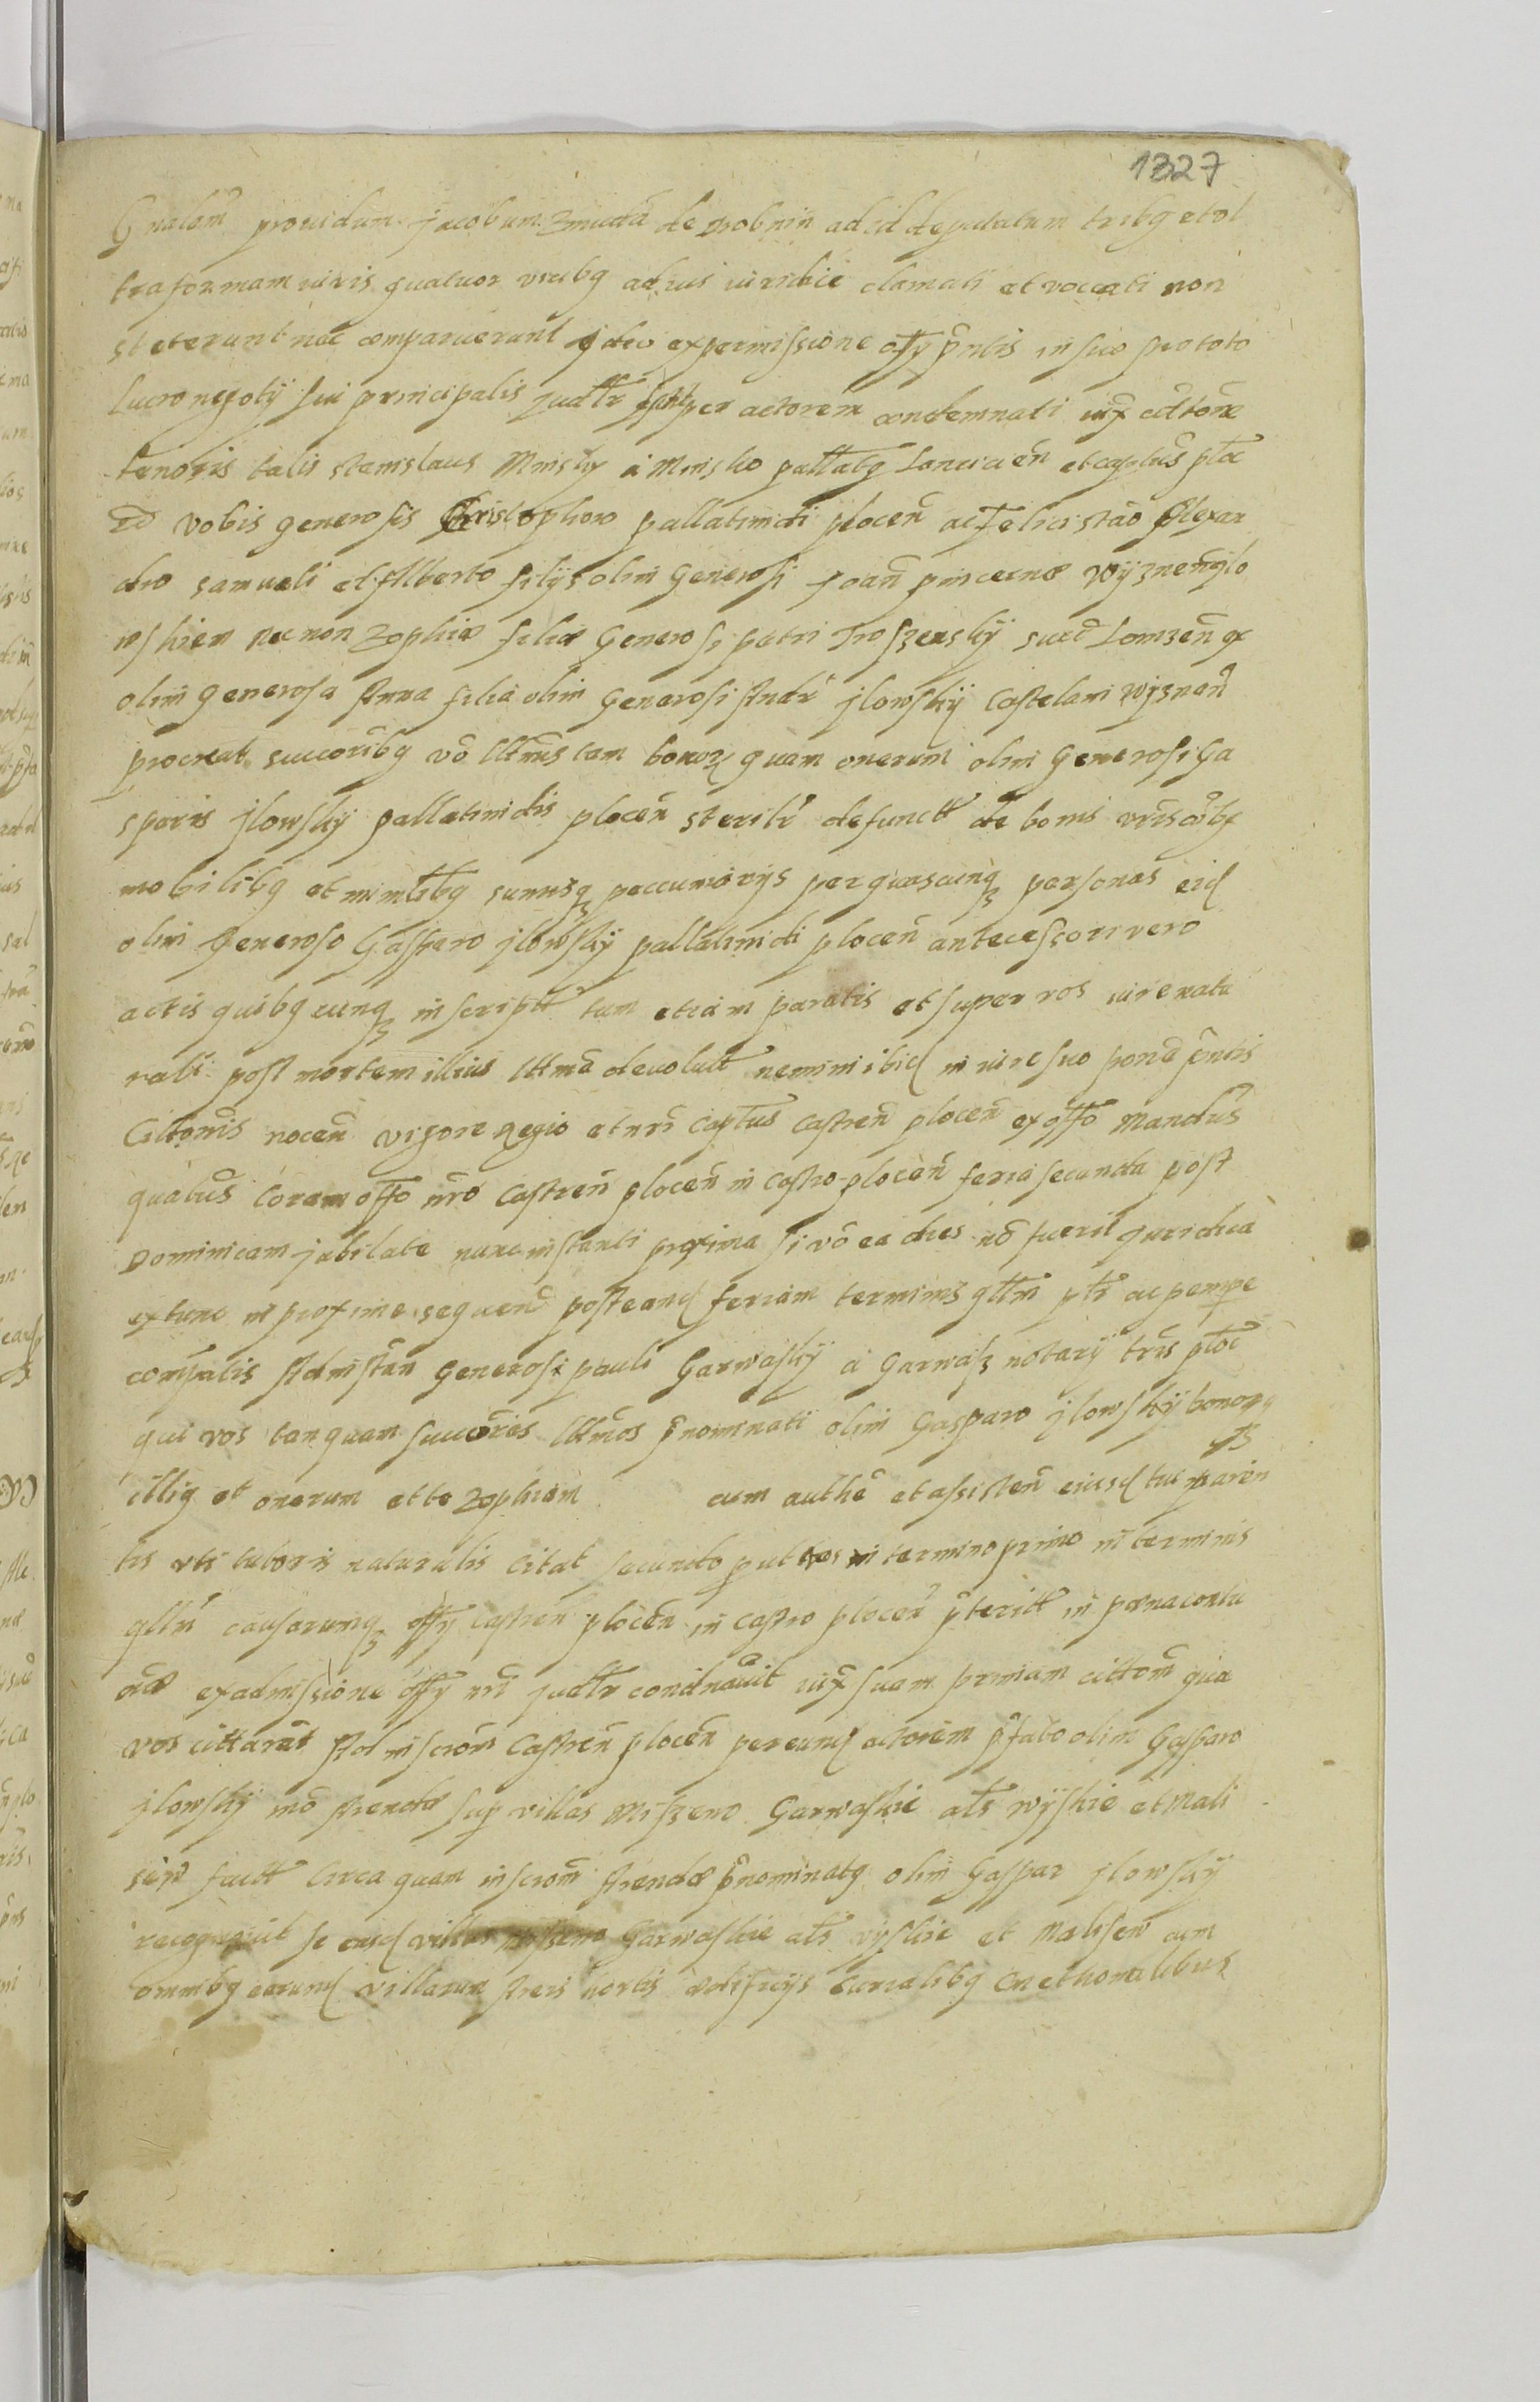 1327
Gnalem providum Jacobum Zmuda de Drobnin ad id deputatum tribg et vl
tra formam iuris quatuor vicibg ad ius iuridice clamati et voccati non
steterunt nec comparuerunt Ideo ex permissione offy pntis in suo pro toto
lucro negoty sui principalis judltr per actorem condemnati iux citt̄one
tenoris talis Stanislaus Minsky a Minsko pallatg Lancicien̄ et captus ploc̄
vobis generosis Christophoro pallatinidi plocen̄ ac Felici stāo Alexan
dro samueli et Alberto filys olim Generosi Joan̄ pincernæ Wyznen
nec non Zophiæ filiæ Generosi petri Troszensky succ̄ Lomzen̄ ex
olim generosa Anna filia olim Generosi Andr̄ Jlowsky Castelani Wyznen̄
procreat succorībg vō llt̄mis tam bonor quam onerum olim Generosi Ga
sparis Jlowsky pallatinidis plocen̄ sterilr defunctt de bonis vr̄is oībg
mobilibg et summisqʒ peccuniarys per quascunqʒ personas eid
olim Generoso Gasparo Jlowsky pallatinidi plocen̄ antecessori vero
actis quibg cunqʒ inscriptt tum etiam paratis et super vos iure natu
rali post mortem illius lltma devolutt nemini ibid in iure suo pend p̄ntis
Cittonis nocen̄ vigore Regio et nr̄i captus Castren̄ plocen̄ ex offo Mandus
quatus Coram offo nr̄o Castren̄ plocen̄ in Castro plocen̄ feria secunda post
Dominicam jubilate nunc instanti proxima si vō ea dies nō fuerit Juridica
extunc in proxime sequend̄ post eand feriam terminis qltm ptr ac pempe
compatis Ad instān Generosi pauli Garwasky a Garwasz notary trīs ploc̄
qui vos tanquam succores lltmos p̄nominati olim Gasparo Jlowsky bonorg
illig et onerum et te Zophiam cum authe et assisten̄ eiusd tui paren
tis uti tutoris naturalis Citat secundo put vos in termino primo in terminis
qltm causarumqʒ offy castren̄ plocen̄ in Castro plocen̄ p̄teritt in pœna contu
ex admissione offy nr̄i judltr condnavit iux suam primam cittom̄ qua
vos cittarat Ad inscrom̄ Castren̄ plocen̄ per eund actorem p̄fato olim Gasparo
Jlowsky mō Arendæ sup villas Miszewo Garwaskie als wyskie et Mali
sew factt Circa quam inscrom̄ Arendæ p̄nominatg olim Gaspar Jlowsky
recognovit se easd villas Miszewo Garwaskie als vyskie et Malisew cum
omnibg earund villarum Areis hortis ædificys curialibg Cmethonalibus